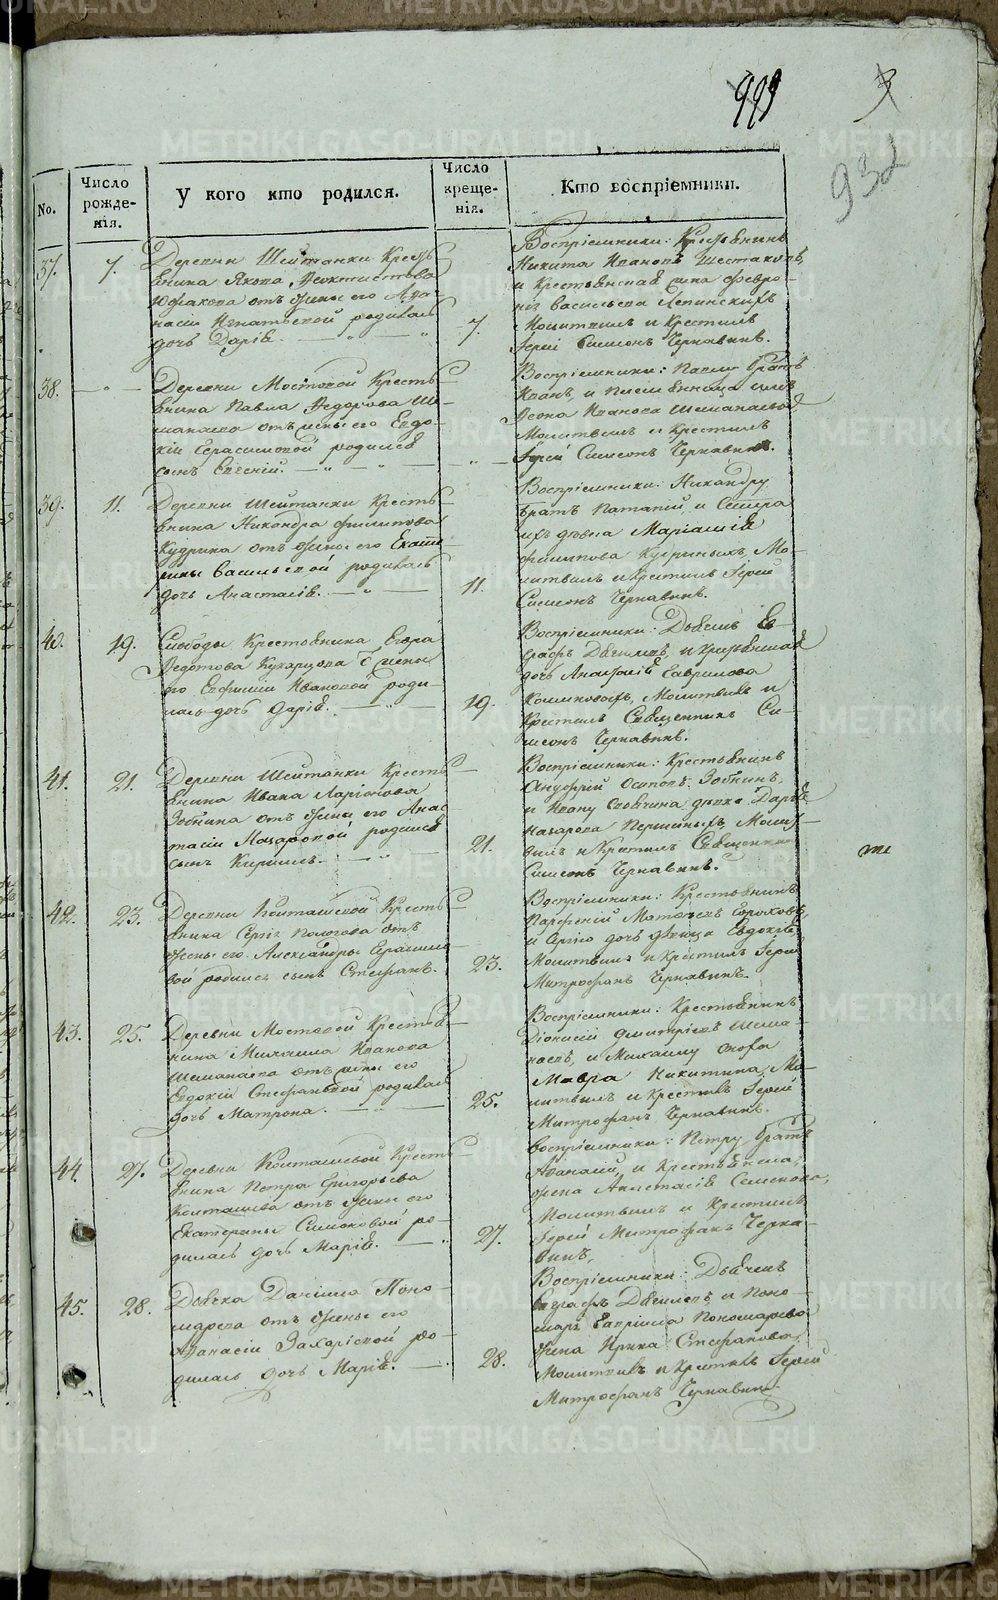 999
3
932
No.
Число рожденія.
У кого кто родился.
Число крещенія.
Кто воспріемники.
37.
7.
Деревни Шейтанки Кресть
янина Якова Ѳеоктистова
Южакова отъ жены его Аѳа-
насіи Игнатьевой родилась
дочь Дарія.
7.
Воспріемники: Крестьянинъ
Никита Ивановъ Шестаковъ,
и Крестьянская жена Февро-
нія Васильева Лепинскихъ
Молитвилъ и Крестилъ
Іерей Симеонъ Чернавинъ.
38.
Деревни Мостовой Кресть
янина Павла Ѳедорова Ше-
манаева отъ жены его Евдо-
кіи Герасимовой родился
сынъ Евгеній.
Воспріемники: Павлу братъ
Иванъ, и
Ивановa Шеманаева
Молитвилъ и Крестилъ
Іерей Симеонъ Чернавинъ.
39.
11.
Деревни Шейтанки Кресть
янина Никандра Филипова
Кудрина отъ жены его Екате
рины Васильевой родилась
дочь Анастасія.
11.
Воспріемники: Никандру
братъ Потапій, и Сестра
ихъ дѣвка Маріамія
Филипова Кудриныхъ, Мо-
литвилъ и Крестилъ Іерей
Симеонъ Чернавинъ.
40.
19.
Слободы Крестьянина Егора
Ѳедотова Кухарцова жены
его Евфиміи Ивановой роди-
лась дочь Дарія.
19.
Воспріемники: Дьячекъ Ев-
графъ и Крестьянская
дочь Анастасія Гаврилова
Молитвилъ и
Крестилъ Священникъ Си-
меонъ Чернавинъ.
41.
21.
Деревни Шейтанки Кресть
янина Ивана Ларіонова
Зобнина отъ жены его Анас
тасіи Назаровой родился
сынъ Кирилъ.
21.
Воспріемники: Крестьянинъ
Онуфрій Осиповъ Зобнинъ,
и Ивану дѣвка Дарья
Назарова Першиныхъ, Молит-
вилъ и Крестилъ Священникъ
Симеонъ Чернавинъ.
42.
23.
Деревни Колташевой Кресть
янина Сергія Пологова отъ
жены его Александры Герасимо
вой родился сынъ Стефанъ.
23.
Воспріемники: Крестьянинъ
Парфеній Матѳеевъ Гороховъ,
и Сергію дочь дѣвица Евдокія
Молитвилъ и Крестилъ Іерей
Митрофанъ Чернавинъ.
43.
25.
Деревни Мостовой Крестья
нина Михаила Иванова
Шеманаева отъ жены его
Евдокіи Стефановой родилась
дочь Матрона.
25.
Воспріемники: Крестьянинъ
Діонисій Дмитріевъ Шема-
наевъ, и Михаилу сноха
Мавра Никитина, Мо-
литвилъ и Крестилъ Іерей
Митрофанъ Чернавинъ.
44.
27.
Деревни Колташевой Кресть
янина Петра Григорьева
Колташева отъ жены его
Екатерины Симоновой ро-
дилась дочь Марія.
27.
Воспріемники: Петру братъ
Аѳанасій, и Крестьянская
жена Анастасія Семенова,
Молитвилъ и Крестилъ
Іерей Митрофанъ Черна-
винъ.
45.
28.
Дьячка Даніила Поно-
марева отъ жены его
Аѳанасіи Захаріевой ро-
дилась дочь Марія.
28.
Воспріемники: Дьячекъ
Евграфъ и Поно-
маря Гавріила Пономарева
жена Ирина Стефанова,
Молитвилъ и Крестилъ Іерей
Митрофанъ Чернавинъ.